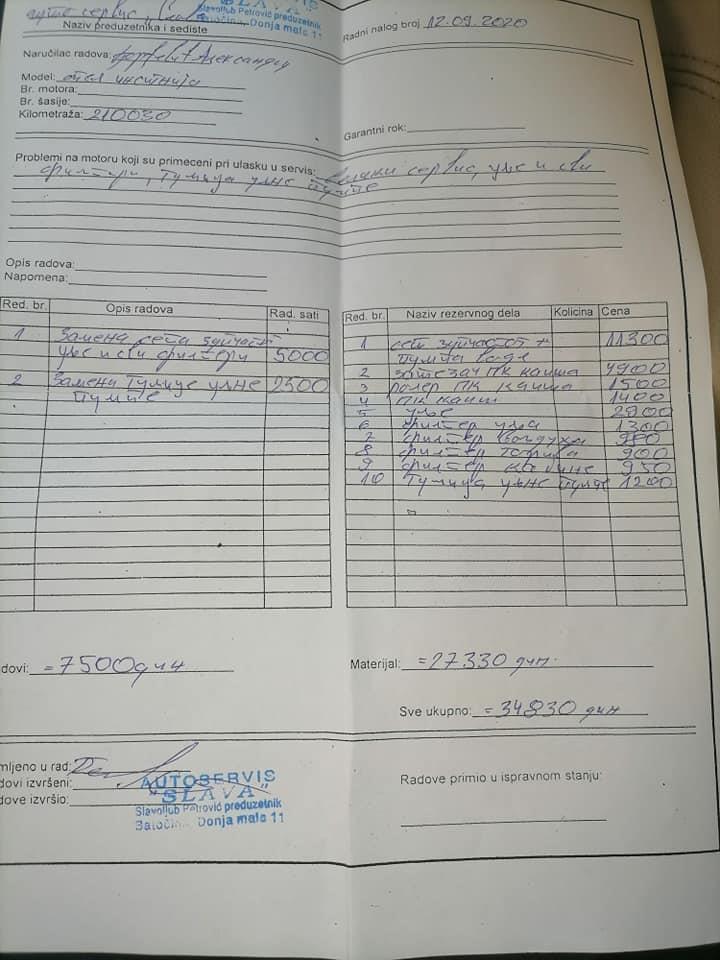 ауто сервис
SLAVA
Slavoljub Petrović preduzetnik
Batočina, Donja mala 11
Naziv preduzetnika i sediste
Radni nalog broj 12.09.2020
Naručilac radova: Александар
Model: опел инсигнија
Br. motora:
Br. šasije:
Kilometraža: 210030
Garantni rok:
Problemi na motoru koji su primeceni pri ulasku u servis: велики сервис, уље и сви
филтери, гумица уљне пумпе
Opis radova:
Napomena:
Red. br. Opis radova Rad. sati
1 Замена сета зупчастог
уље и сви филтери 5000
2 Замена гумице уљне 2500
пумпе
Red. br. Naziv rezervnog dela Kolicina Cena
1 сет зупчастог + 11300
пумпа воде
2 затезач ПК каиша 4900
3 ролер ПК каиша 1500
4 ПК каиш 1400
5 уље 2900
6 филтер уља 1300
7 филтер ваздуха
8 филтер горива 900
9 филтер кабине 950
10 гумица уљне пумпе 1200
dovi: =7500дин
Materijal: =27330 дин.
Sve ukupno: =34830 дин
mljeno u rad:
dovi izvršeni:
dove izvršio:
AUTOSERVIS
"SLAVA"
Slavoljub Petrović preduzetnik
Batočina, Donja mala 11
Radove primio u ispravnom stanju: